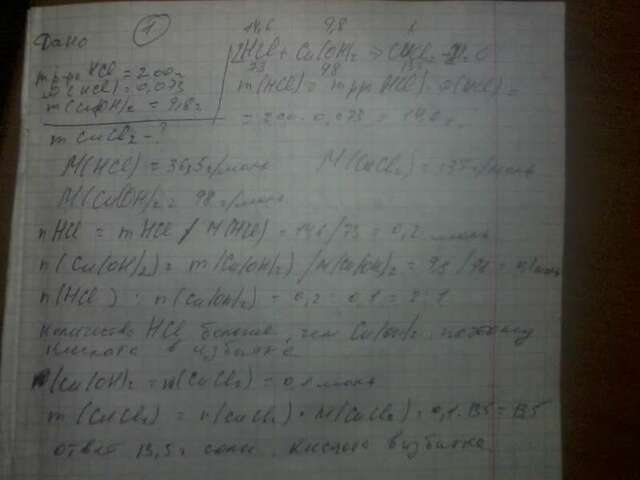 Дано ①
m р-ра HCl = 200г
ω(HCl) = 0,073
m(Cu(OH)2 = 9,8г
m CuCl2 - ?
14,6 9,8 x
2HCl + Cu(OH)2 → CuCl2 + 2H2O
73 98
m(HCl) = m р-ра(HCl) · ω(HCl) =
= 200 · 0,073 = 14,6 г.
M(HCl) = 36,5 г/моль M(CuCl2) = 135 г/моль
M(Cu(OH)2 = 98 г/моль
n HCl = m HCl / M(HCl) = 14,6/73 = 0,2 моль
n(Cu(OH)2) = m(Cu(OH)2) / M(Cu(OH)2 = 9,8/98 = 0,1
n(HCl) : n(Cu(OH)2 = 0,2 : 0,1 = 2:1
количество HCl больше чем Cu(OH)2 поэтому
кислота в избытке
n(Cu(OH)2 = n(CuCl2) = 0,1 моль
m(CuCl2) = n(CuCl2) · M(CuCl2) = 0,1 · 135 = 13,5
ответ 13,5г соли, кислота в избытке